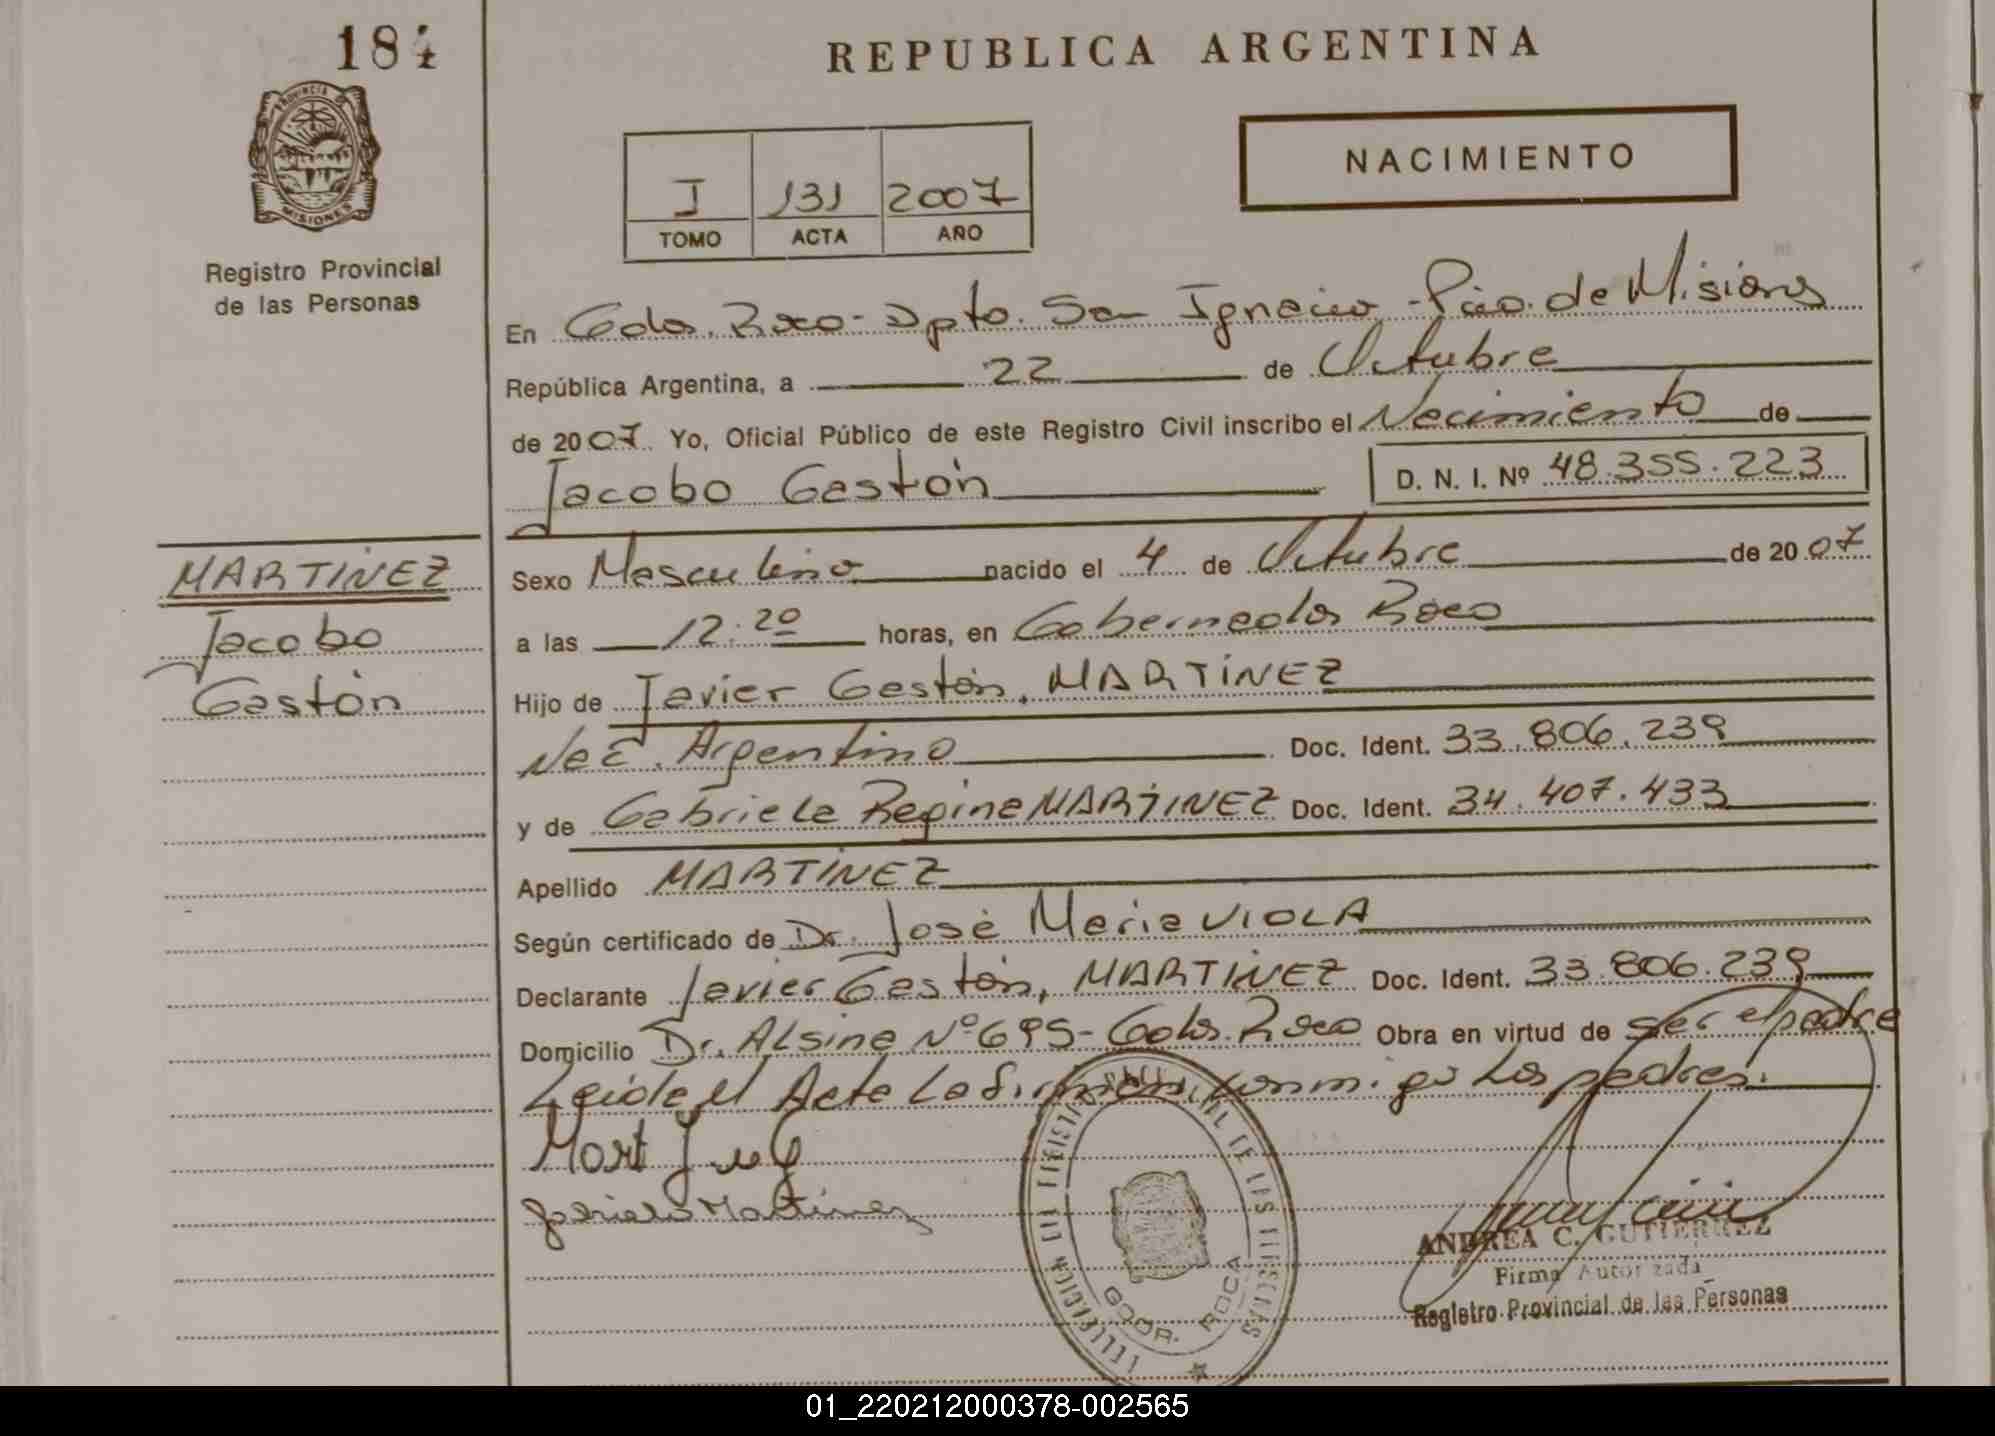 184
REPUBLICA ARGENTINA
PROVINCIA DE
MISIONES
Registro Provincial
de las Personas
I 131 2007
TOMO ACTA AÑO
NACIMIENTO
En Gdor. Roca - Dpto. San Ignacio - Pcia. de Misiones
República Argentina, a 22 de Octubre
de 2007 Yo, Oficial Público de este Registro Civil inscribo el Nacimiento de
Jacobo Gastón D. N. I. Nº 48.355.223
MARTÍNEZ
Jacobo
Gastón
Sexo Masculino nacido el 4 de Octubre de 2007
a las 12.20 horas, en Gobernador Roca
Hijo de Javier Gastón, MARTÍNEZ
Nac. Argentino Doc. Ident. 33.806.239
y de Gabriela Regina MARTÍNEZ Doc. Ident. 34.407.433
Apellido MARTÍNEZ
Según certificado de Dr. José Maria VIOLA
Declarante Javier Gastón, MARTÍNEZ Doc. Ident. 33.806.239
Domicilio Dr. Alsina Nº 695 - Gdor. Roca Obra en virtud de ser el padre
Leida el Acta La firman conmigo Los padres.
Mart
Gabriela Martinez
GDOR. ROCA
ANDREA C. GUTIERREZ
Firma Autorizada
Registro Provincial de las Personas
01_220212000378-002565